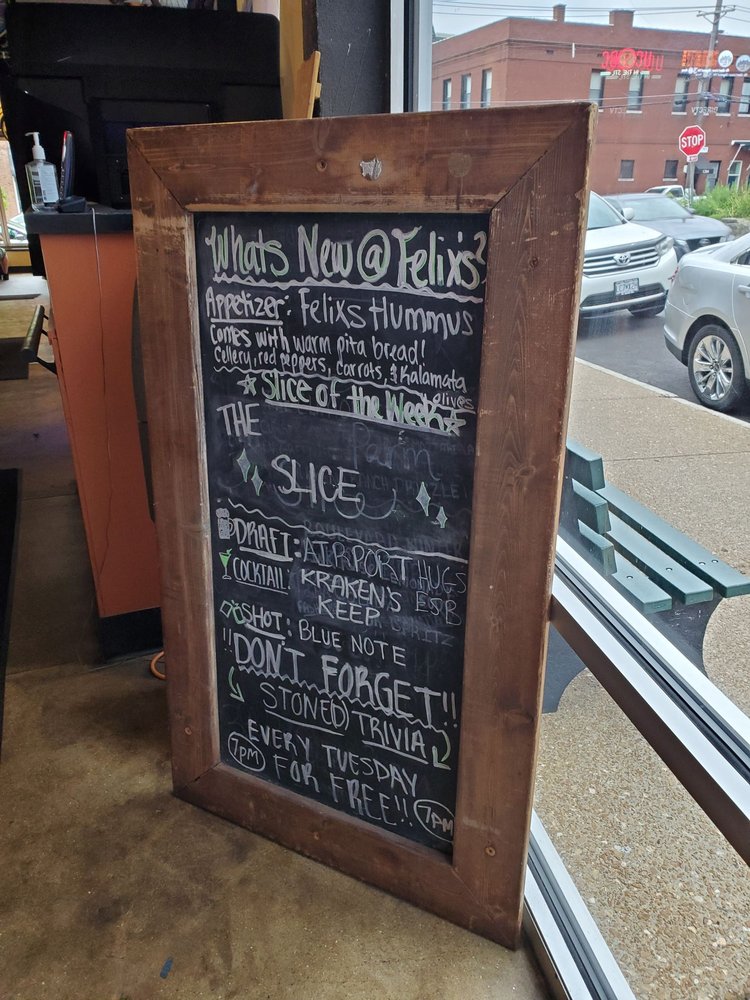 Whats New @ Felix's?
Appetizer: Felixs Hummus
Comes with warm pita bread!
Cellery, red peppers, carrots, & Kalamata
olives
Slice of the Week
THE
Parm
SLICE
DRAFT: AIRPORT HUGS
ESB
COCKTAIL: KRAKEN'S
KEEP
SHOT: BLUE NOTE
!!DON'T FORGET!!
STONE(D) TRIVIA
EVERY TUESDAY
7PM
FOR FREE!!
7PM
STOP